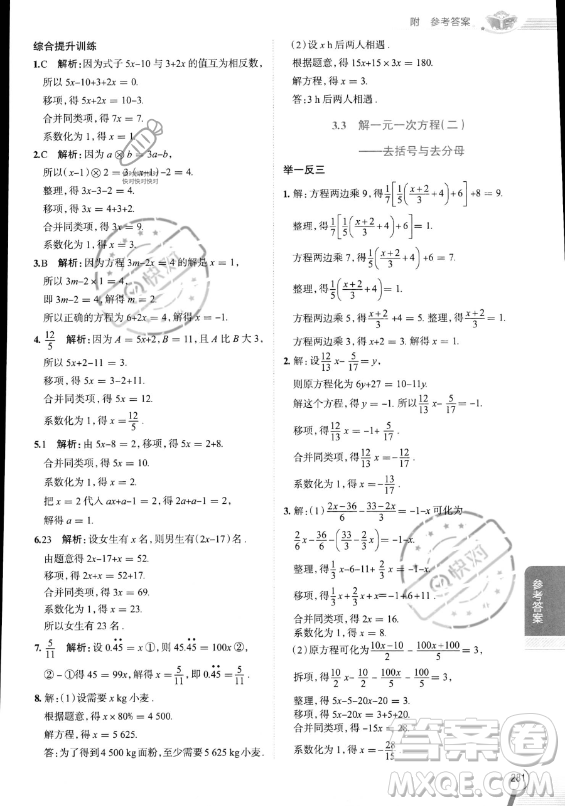 附 参考答案
综合提升训练
1.C 解析:因为式子 5x-10 与 3+2x 的值互为相反数,
所以 5x-10+3+2x = 0.
移项,得 5x+2x = 10-3.
合并同类项,得 7x = 7.
系数化为 1,得 x = 1.
2.C 解析:因为 a ⊗ b = 3a-b,
所以(x-1)⊗ 2 = -2 = 4.
整理,得 3x-3-2 = 4.
移项,得 3x = 4+3+2.
合并同类项,得 3x = 9.
系数化为 1,得 x = 3.
3.B 解析:因为方程 3m-2x = 4 的解是 x = 1,
所以 3m-2×1 = 4,
即 3m-2 = 4,解得 m = 2.
所以正确的方程为 6+2x = 4,解得 x = -1.
4. 12/5 解析:因为 A = 5x+2, B = 11,且 A 比 B 大 3,
所以 5x+2-11 = 3.
移项,得 5x = 3-2+11.
合并同类项,得 5x = 12.
系数化为 1,得 x = 12/5.
5.1 解析:由 5x-8 = 2,移项,得 5x = 2+8.
合并同类项,得 5x = 10.
系数化为 1,得 x = 2.
把 x = 2 代入 ax+a=
解得 a = 1.
6.23 解析:设女生有 x 名,则男生有(2x-17)名.
由题意得 2x-17+x = 52.
移项,得 2x+x = 52+17.
合并同类项,得 3x = 69.
系数化为 1,得 x = 23.
所以女生有 23 名.
7. 5/11 解析:设 0.4̇5̇ = x ①,则 45.4̇5̇ = 100x ②,
②-①得 45 = 99x,解得 x = 5/11,即 0.4̇5̇ = 5/11.
8. 解:(1)设需要 x kg 小麦.
根据题意,得 x × 80% = 4 500.
解方程,得 x = 5 625.
答:为了得到 4 500 kg 面粉,至少需要 5 625 kg 小麦.
(2)设 x h 后两人相遇.
根据题意,得 15x+15x × 3 = 180.
解方程,得 x = 3.
答:3 h 后两人相遇.
3.3 解一元一次方程(二)
——去括号与去分母
举一反三
1. 解:方程两边乘 9,得 1/7[1/5((x+2)/3+4)+6]+8 = 9.
整理,得 1/7[1/5((x+2)/3+4)+6] = 1.
方程两边乘 7,得 1/5((x+2)/3+4)+6 = 7.
整理,得 1/5((x+2)/3+4) = 1.
方程两边乘 5,得 (x+2)/3+4 = 5.
方程两边乘 3,得 x+2 = 3,解得 x = 1.
2. 解:设 12/13 x - 5/17 = y,
则原方程化为 6y+27 = 10-11y.
解得 y = -1. 所以 12/13 x - 5/17 = -1.
移项,得 12/13 x = -1 + 5/17.
合并同类项,得 12/13 x = -12/17.
系数化为 1,得 x = -13/17.
3. 解:(1) (2x-36)/6 - (33-2x)/3 = -1-x 可化为
2/6 x - 36/6 - (33/3 - 2/3 x) = -1-x,
整理,得 1/3 x-6-11+ 2/3 x = -1-x,
移项,得 1/3 x + 2/3 x+x = -1+6+11.
合并同类项,得 2x = 16.
系数化为 1,得 x = 8.
(2)原方程可化为 (10x-10)/2 - = 3,
拆项,得 10/2 x - 10/2 -
整理,得
移项,得 5x- x = 3+5+5.
合并同类项,得 -
系数化为 1,得 x = - 28
参考答案
快对
答案
261